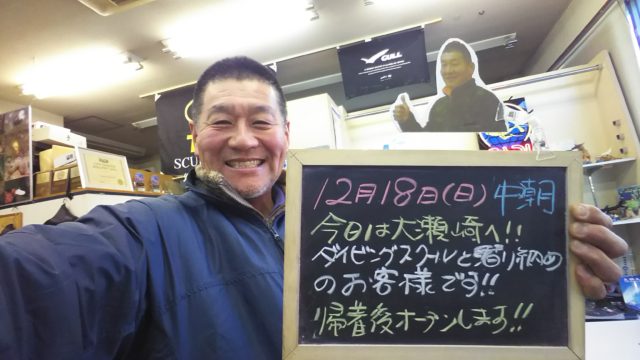 GULL
SCU
12月18日(日) 中朝
今日は大瀬崎へ!!
ダイビングスクールと潜り納め
のお客様です!!
帰着後オープンします!!